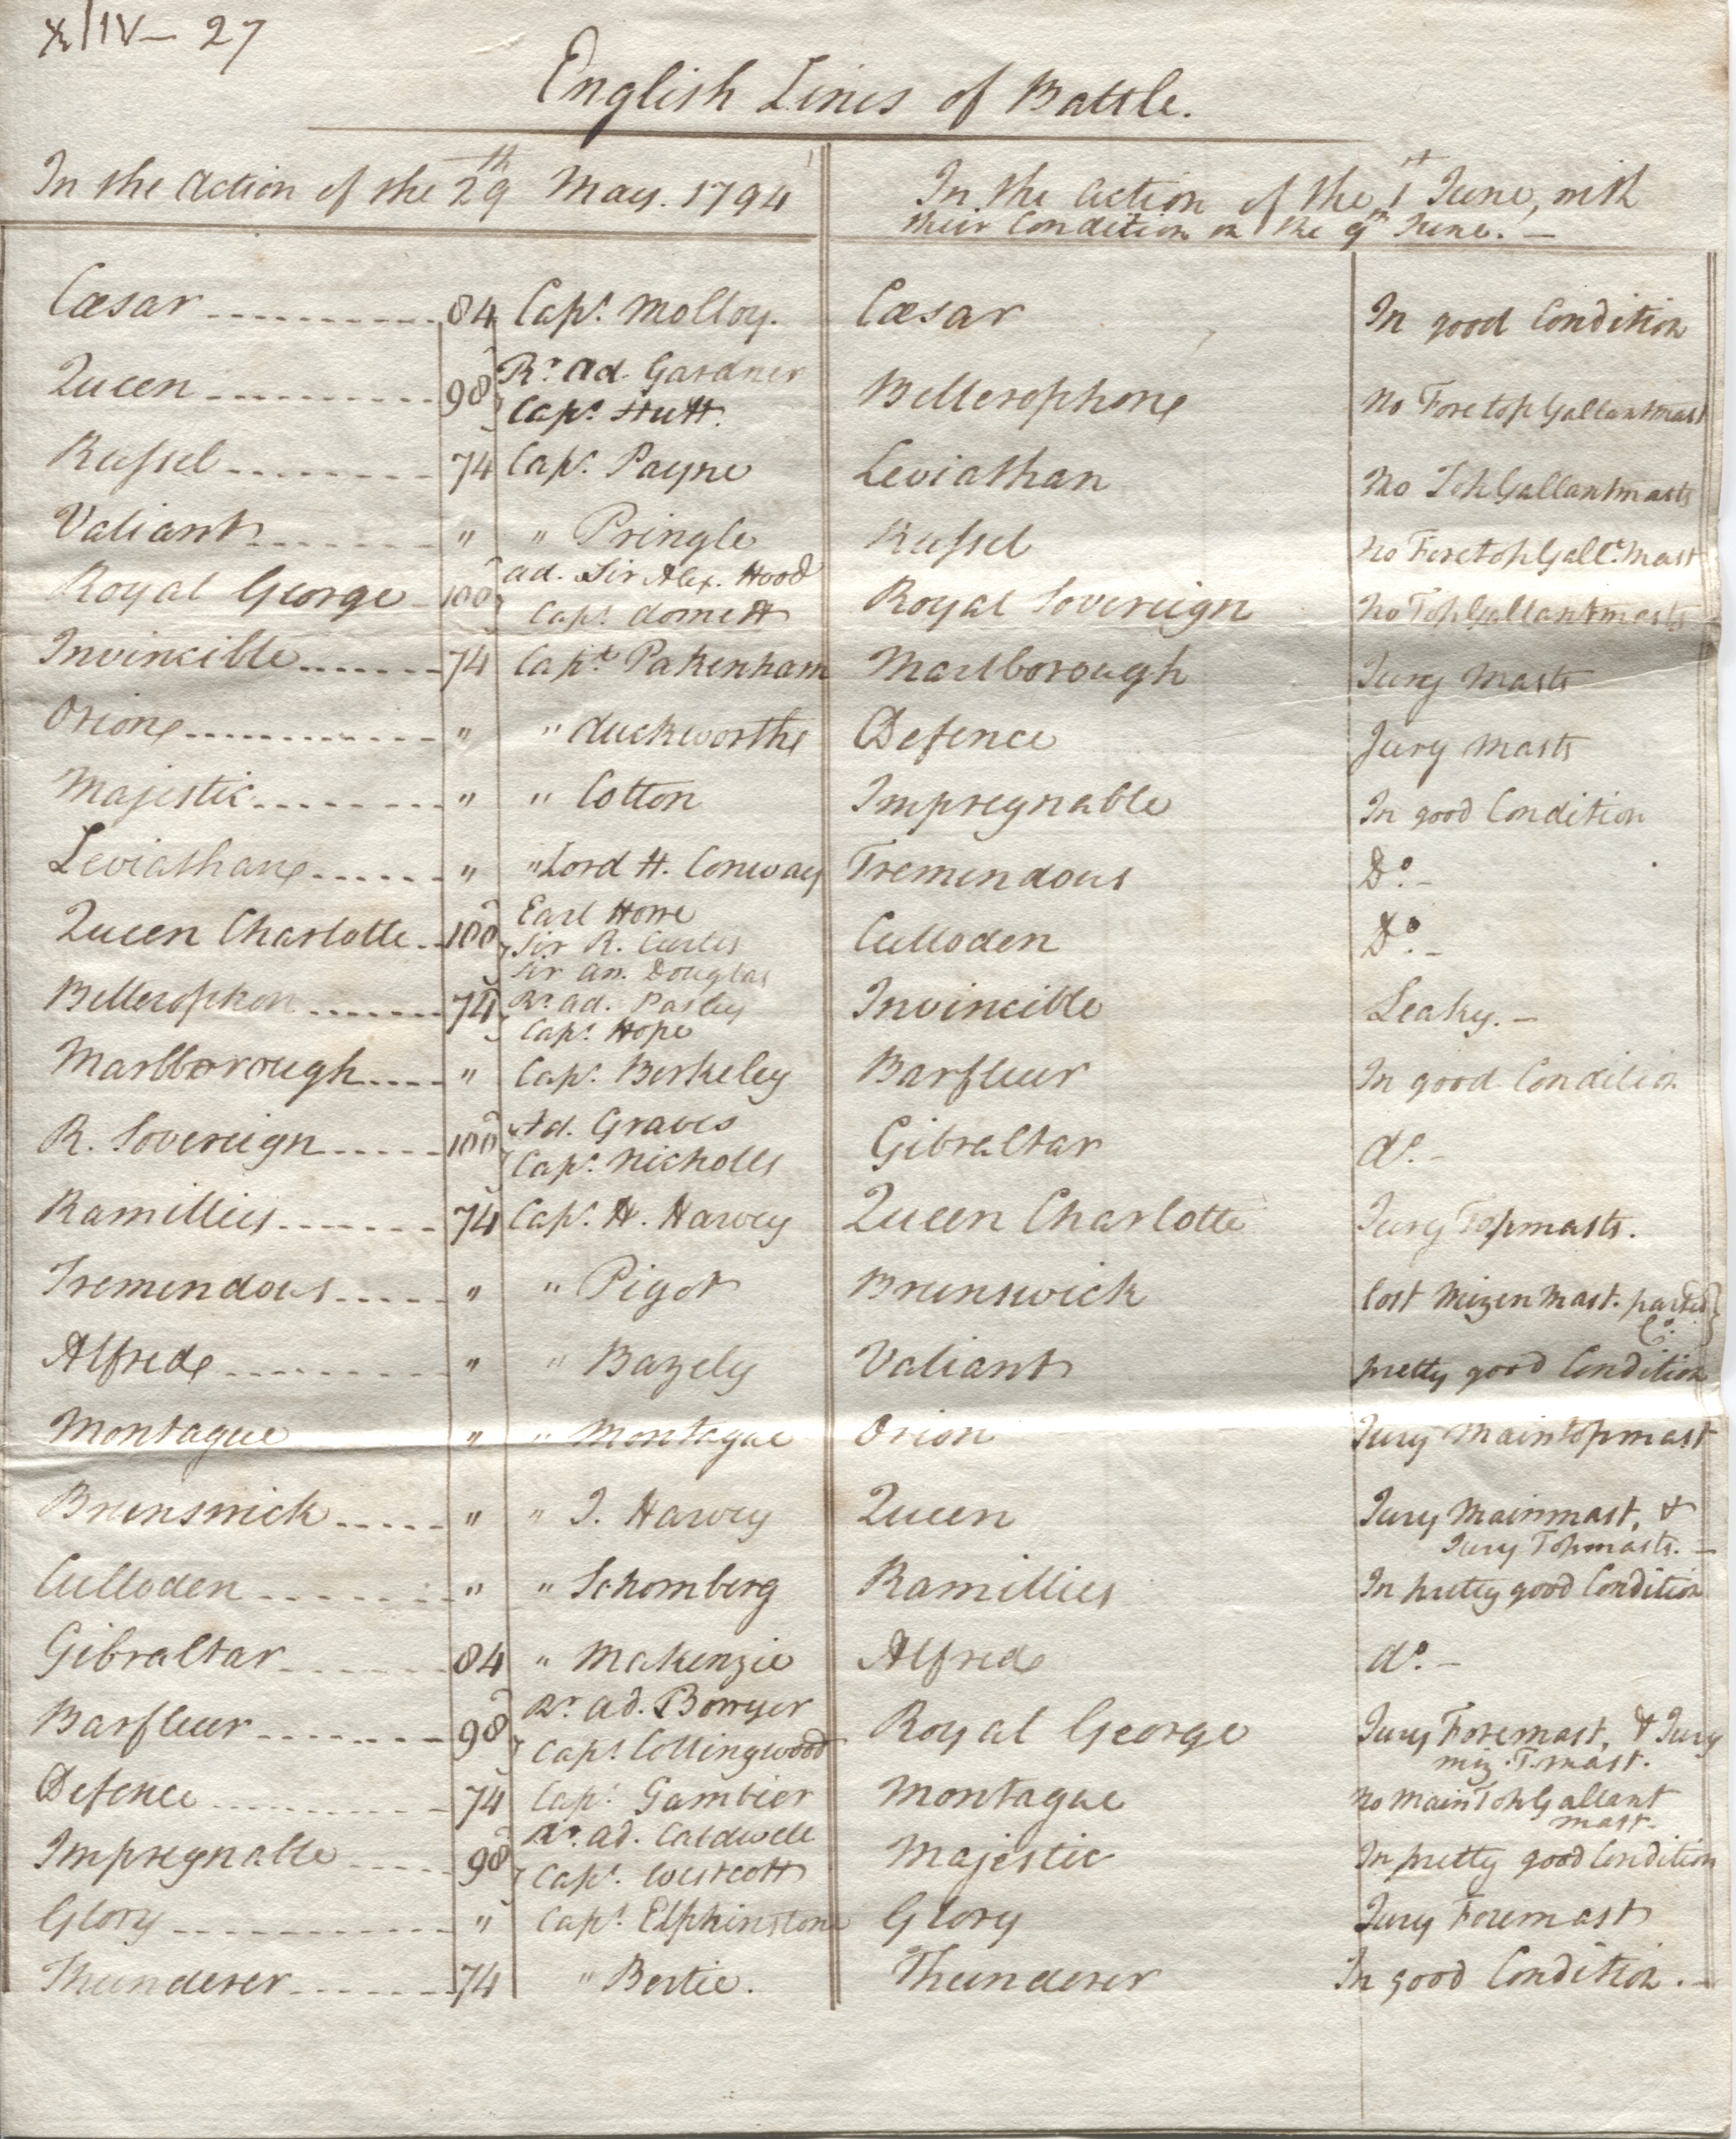 X/IV— 27
English Lines of Battle.
In the Action of the 29th May. 1794
In the Action of the 1st June, with
their Condition on the 9th June. —
Cæsar 84 Capt. Molloy. Cæsar In good Condition
Queen 98 Rr. Ad. Gardner
Capt. Hutt. Bellerophon No Foretop Gallantmast
Russel 74 Capt. Payne Leviathan No Top Gallantmasts
Valiant " " Pringle Russel No Foretop Gallt. Mast
Royal George 100 Ad. Sir Alex. Hood
Capt. Domett Royal Sovereign No Top Gallantmasts
Invincible 74 Capt. Pakenham Marlborough Jury Masts
Orion " " Duckworth Defence Jury Masts
Majestic " " Cotton Impregnable In good Condition
Leviathan " " Lord H. Conway Tremendous Do. –
Queen Charlotte 100 Earl Howe
Sir R. Curtis
Sir An. Douglas Culloden Do. –
Bellerophon 74 Rr. Ad. Pasley
Capt. Hope Invincible Leaky. –
Marlborough " Capt. Berkeley Barfleur In good Condition
R. Sovereign 100 Ad. Graves
Capt. Nicholls Gibraltar do. –
Ramillies 74 Capt. H. Harvey Queen Charlotte Jury Topmasts.
Tremendous " " Pigot Brunswick lost Mizen Mast. parted
Co.
Alfred " " Bazely Valiant pretty good Condition
Montague " " Montague Orion Jury Maintopmast
Brunswick " " J. Harvey Queen Jury Mainmast, &
Jury Topmasts. –
Culloden " " Schomberg Ramillies In pretty good Condition
Gibraltar 84 " Makenzie Alfred do. –
Barfleur 98 Rr. Ad. Bowyer
Capt. Collingwood Royal George Jury Foremast, & Jury
miz. T. mast.
Defence 74 Capt. Gambier Montague No Main Top Gallant
mast –
Impregnable 98 Rr. Ad. Caldwell
Capt. Westcott Majestic In pretty good Condition
Glory " Capt. Elphinstone Glory Jury Foremast
Thunderer 74 " Bertie. Thunderer In good Condition. –